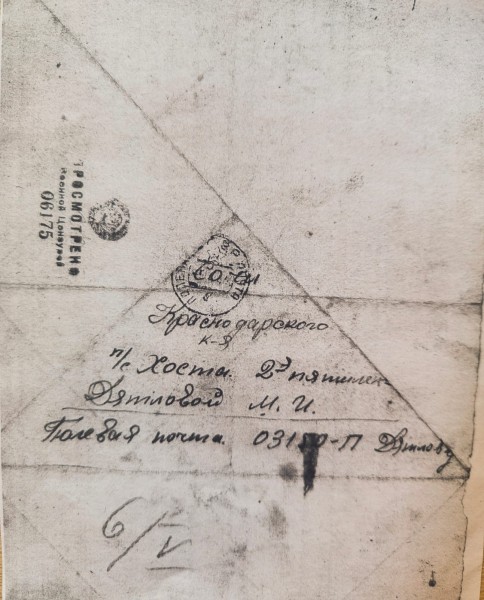 ПРОСМОТРЕНО
Военной Цензурой
06175
Краснодарского
к-я
п/с Хоста. 2я пятилет-
Дятловой М. И.
Полевая почта. 03150-П Дятлову
6/V